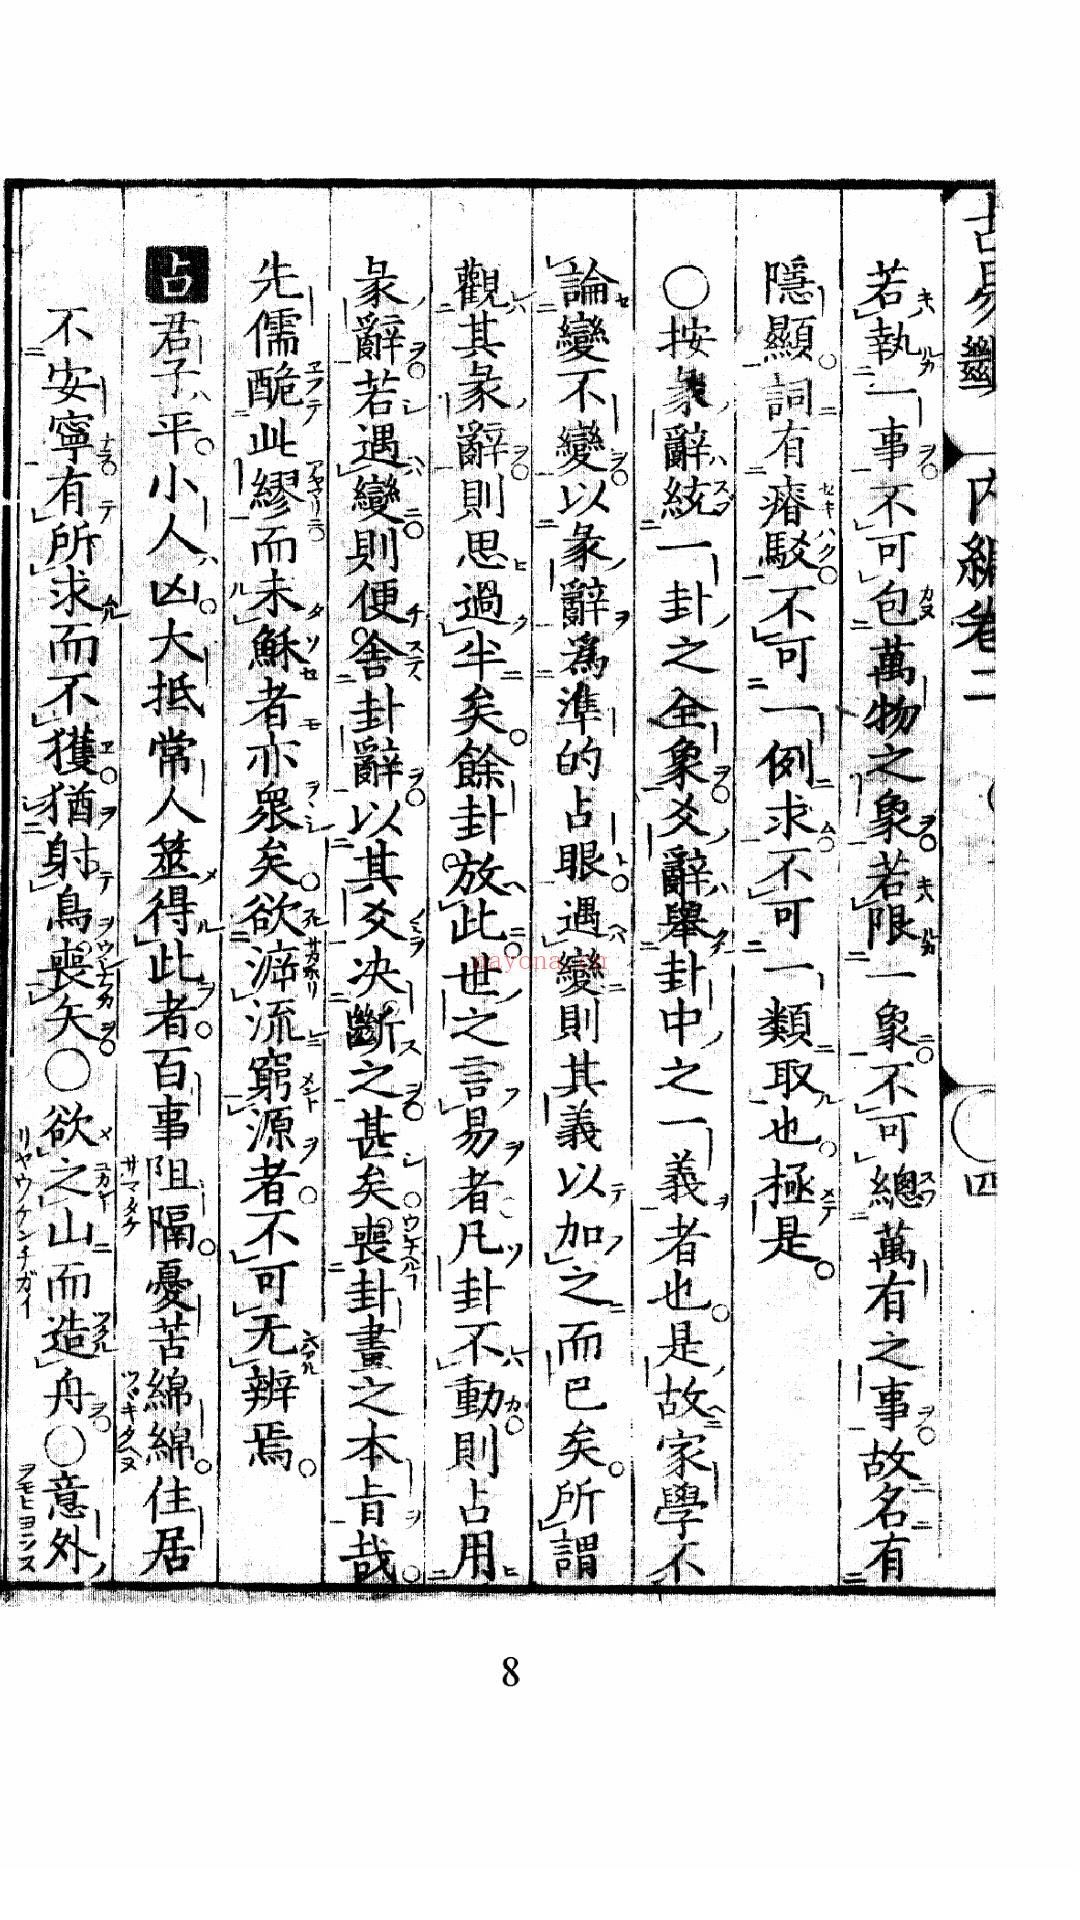 古易斷 内編卷二 四
若執一事不可包萬物之象若限一象不可總萬有之事故名有
隱顯詞有瘠駁不可一例求不可一類取也極是
○按彖辭統一卦之全象爻辭舉卦中之一義者也是故家學不
論變不變以彖辭爲準的占眼遇變則其義以加之而已矣所謂
觀其彖辭則思過半矣餘卦放此世之言易者凡卦不動則占用
彖辭若遇變則便舍卦辭以其爻决斷之甚矣喪卦畫之本旨哉
先儒酏此繆而未穌者亦衆矣欲泝流窮源者不可无辨焉
占君子平小人凶大抵常人筮得此者百事阻隔憂苦綿綿住居
不安寧有所求而不獲猶射鳥喪矢○欲之山而造舟○意外
nayona.cn
8